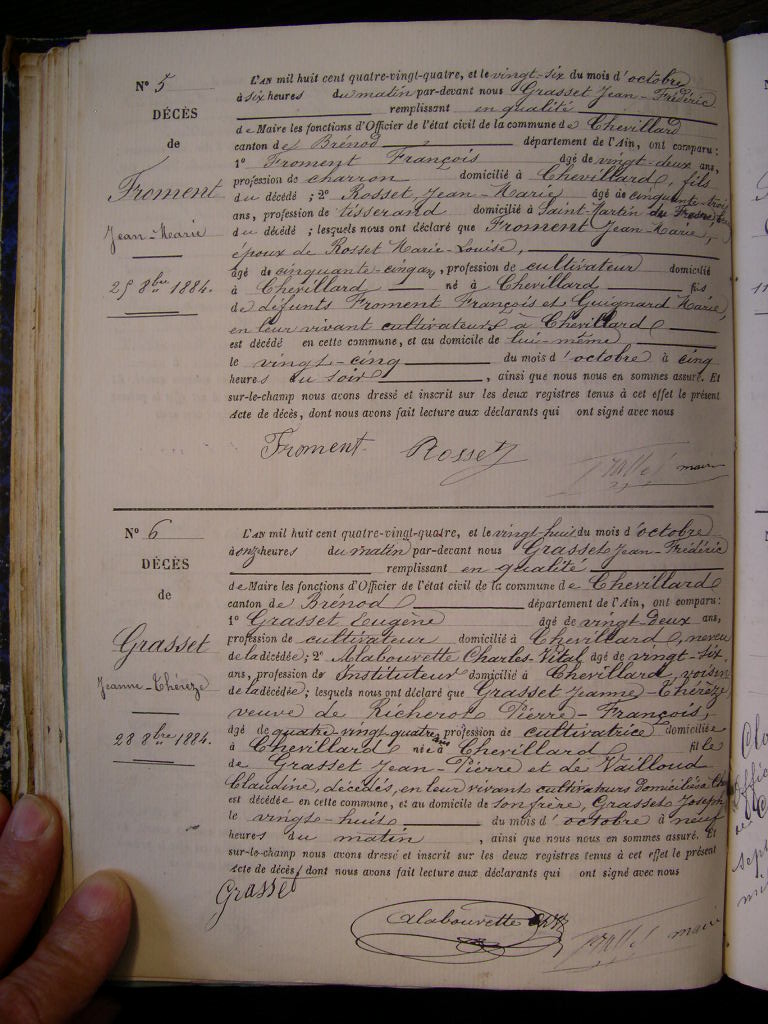 N° 5
DÉCÈS
de
Froment
Jean-Marie
25 8bre 1884.
L'AN mil huit cent quatre-vingt-quatre, et le vingt-six du mois d'octobre
à six heures du matin par-devant nous Grasset Jean-Frédéric
remplissant en qualité
de Maire les fonctions d'Officier de l'état civil de la commune de Chevillard
canton de Brénod département de l'Ain, ont comparu :
1° Froment François âgé de vingt-deux ans,
profession de charron domicilié à Chevillard, fils
du décédé ; 2° Rosset Jean-Marie âgé de cinquante-trois
ans, profession de tisserand domicilié à Saint-Martin du Fresne,
du décédé ; lesquels nous ont déclaré que Froment Jean-Marie,
époux de Rosset Marie-Louise,
âgé de cinquante-cinq ans, profession de cultivateur domicilié
à Chevillard né à Chevillard fils
de défunts Froment François et Guignard Marie,
en leur vivant cultivateurs à Chevillard
est décédé en cette commune, et au domicile de lui-même
le vingt-cinq du mois d'octobre à cinq
heures du soir, ainsi que nous nous en sommes assuré. Et
sur-le-champ nous avons dressé et inscrit sur les deux registres tenus à cet effet le présent
Acte de décès, dont nous avons fait lecture aux déclarants qui ont signé avec nous
Froment Rosset maire
N° 6
DÉCÈS
de
Grasset
Jeanne-Thérèze
28 8bre 1884.
L'AN mil huit cent quatre-vingt-quatre, et le vingt-huit du mois d'octobre
à onze heures du matin par-devant nous Grasset Jean-Frédéric
remplissant en qualité
de Maire les fonctions d'Officier de l'état civil de la commune de Chevillard
canton de Brénod département de l'Ain, ont comparu :
1° Grasset Eugène âgé de vingt-deux ans,
profession de cultivateur domicilié à Chevillard, neveu
de la décédée ; 2° Alabouvette Charles-Vital âgé de vingt-six
ans, profession de Instituteur domicilié à Chevillard, voisin
de la décédée ; lesquels nous ont déclaré que Grasset Jeanne-Thérèze
veuve de Richerot Pierre-François,
âgé de quatre-vingt-quatre ans profession de cultivatrice domiciliée
à Chevillard née à Chevillard fille
de Grasset Jean-Pierre et de Vailloud
Claudine, décédés, en leur vivant cultivateurs domiciliés à
est décédée en cette commune, et au domicile de son frère, Grasset Joseph
le vingt-huit du mois d'octobre à neuf
heures du matin, ainsi que nous nous en sommes assuré. Et
sur-le-champ nous avons dressé et inscrit sur les deux registres tenus à cet effet le présent
Acte de décès, dont nous avons fait lecture aux déclarants qui ont signé avec nous
Grasset
Alabouvette maire